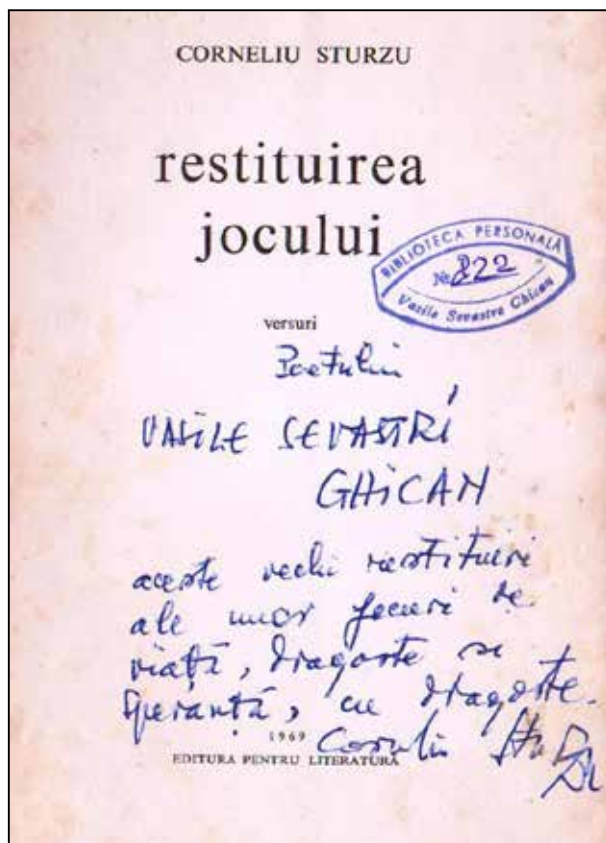 CORNELIU STURZU
restituirea
jocului
BIBLIOTECA PERSONALĂ
№ 822
Vasile Sevastre Ghican
versuri
Poetului
VASILE SEVASTRI
GHICAN
aceste vechi restituiri
ale unor jocuri de
viață, dragoste și
speranță, cu dragoste.
1969 Corneliu Sturzu
EDITURA PENTRU LITERATURĂ